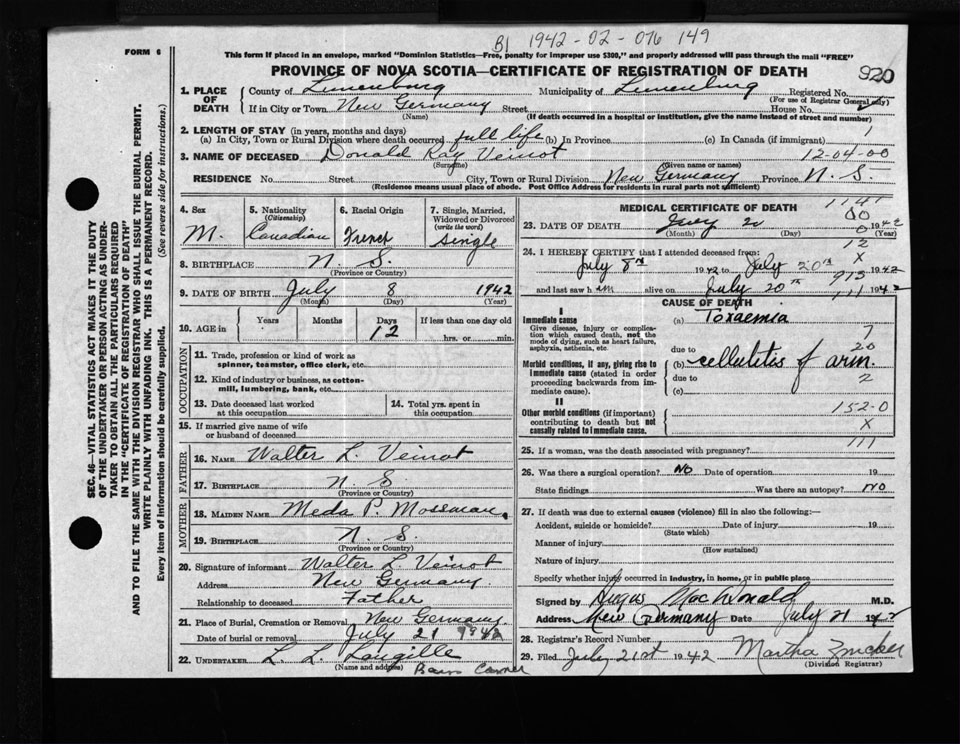 B1 1942-02-076 149
FORM 6
This form if placed in an envelope, marked "Dominion Statistics—Free, penalty for improper use $300," and properly addressed will pass through the mail "FREE"
PROVINCE OF NOVA SCOTIA—CERTIFICATE OF REGISTRATION OF DEATH
920
1. PLACE OF DEATH
County of Lunenburg Municipality of Lunenburg Registered No.
(For use of Registrar General only)
If in City or Town New Germany Street House No.
(Name) (If death occurred in a hospital or institution, give the name instead of street and number)
2. LENGTH OF STAY (in years, months and days)
(a) In City, Town or Rural Division where death occurred full life (b) In Province (c) In Canada (if immigrant) 1
3. NAME OF DECEASED Donald Ray Veinot 12-04-00
(Surname) (Given name or names)
RESIDENCE No. Street City, Town or Rural Division New Germany Province N. S.
(Residence means usual place of abode. Post Office Address for residents in rural parts not sufficient)
4. Sex M.
5. Nationality (Citizenship) Canadian
6. Racial Origin French
7. Single, Married, Widowed or Divorced (write the word) Single
8. BIRTHPLACE N. S.
(Province or Country)
9. DATE OF BIRTH July 8 1942
(Month) (Day) (Year)
10. AGE in Years Months Days 12 If less than one day old
hrs. or min.
OCCUPATION
11. Trade, profession or kind of work as
spinner, teamster, office clerk, etc.
12. Kind of industry or business, as cotton-
mill, lumbering, bank, etc.
13. Date deceased last worked
at this occupation
14. Total yrs. spent in
this occupation
15. If married give name of wife
or husband of deceased
FATHER
16. NAME Walter L. Veinot
17. BIRTHPLACE N. S
(Province or Country)
MOTHER
18. MAIDEN NAME Meda P. Mossman
19. BIRTHPLACE N. S.
(Province or Country)
20. Signature of informant Walter L. Veinot
Address New Germany
Relationship to deceased Father
21. Place of Burial, Cremation or Removal New Germany
Date of burial or removal July 21 1942
22. UNDERTAKER L. L. Langille
(Name and address)
MEDICAL CERTIFICATE OF DEATH
23. DATE OF DEATH July 20 1942
(Month) (Day) (Year)
24. I HEREBY CERTIFY that I attended deceased from:
July 8th 1942 to July 20th 1942
and last saw him alive on July 20th 1942
CAUSE OF DEATH
I
Immediate cause
Give disease, injury or complication which caused death, not the mode of dying, such as heart failure, asphyxia, asthenia, etc.
(a) Toxaemia
7
due to 20
Morbid conditions, if any, giving rise to immediate cause (stated in order proceeding backwards from immediate cause).
(b) cellulitis of arm.
due to 2
(c)
II
Other morbid conditions (if important) contributing to death but not causally related to immediate cause.
152-0
X
111
25. If a woman, was the death associated with pregnancy?
26. Was there a surgical operation? No Date of operation 19
State findings Was there an autopsy? no
27. If death was due to external causes (violence) fill in also the following:—
Accident, suicide or homicide? Date of injury 19
(State which)
Manner of injury
(How sustained)
Nature of injury
Specify whether injury occurred in industry, in home, or in public place
Signed by Angus MacDonald M.D.
Address New Germany Date July 21 1942
28. Registrar's Record Number
29. Filed July 21st 1942 Martha
(Division Registrar)
SEC. 46—VITAL STATISTICS ACT MAKES IT THE DUTY
OF THE UNDERTAKER OR PERSON ACTING AS UNDER-
TAKER TO OBTAIN ALL THE PARTICULARS REQUIRED
IN THE "CERTIFICATE OF REGISTRATION OF DEATH"
AND TO FILE THE SAME WITH THE DIVISION REGISTRAR WHO SHALL ISSUE THE BURIAL PERMIT.
WRITE PLAINLY WITH UNFADING INK. THIS IS A PERMANENT RECORD.
Every item of information should be carefully supplied. (See reverse side for instructions.)